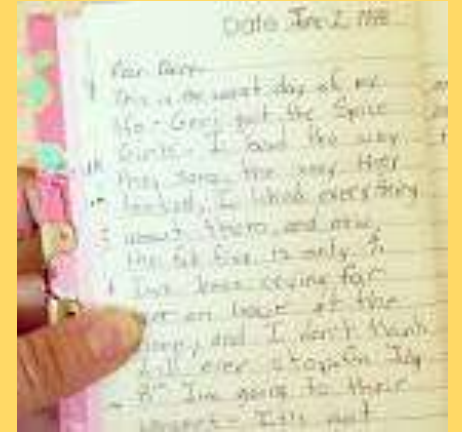 Date June 2, 1998
Dear Diary
This is the worst day of my
life - Geri quit the Spice
Girls - I loved the way
they sang, the way they
looked, I liked everything
about them, and now,
the fab five is only 4
I've been crying for
over an hour at the
and I don't think
I'll ever stop. On July
8th I'm going to their
concert - It's not